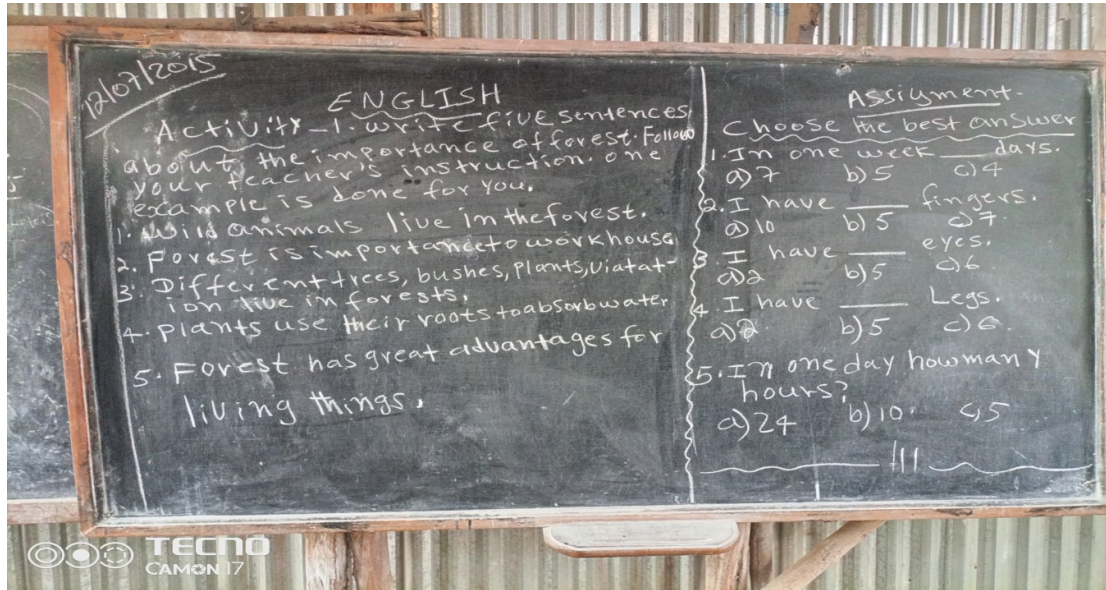 12/07/2015
ENGLISH
Activity-1. write five sentences
about the importance of forest. Follow
your teacher's instruction. one
example is done for you.
1. Wild animals live in the forest.
2. Forest is importance to work house
3. Different trees, bushes, plants, Viatat-
ion live in forests.
4. plants use their roots to absorb water
5. Forest has great advantages for
living things.
Assigment.
Choose the best answer
1. In one week ___ days.
a) 7 b) 5 c) 4
2. I have ___ fingers.
a) 10 b) 5 c) 7
3. I have ___ eyes.
a) 2 b) 5 c) 6
4. I have ___ Legs.
a) 2 b) 5 c) 6.
5. In one day how many
hours?
a) 24 b) 10. c) 5
TECNO
CAMON 17